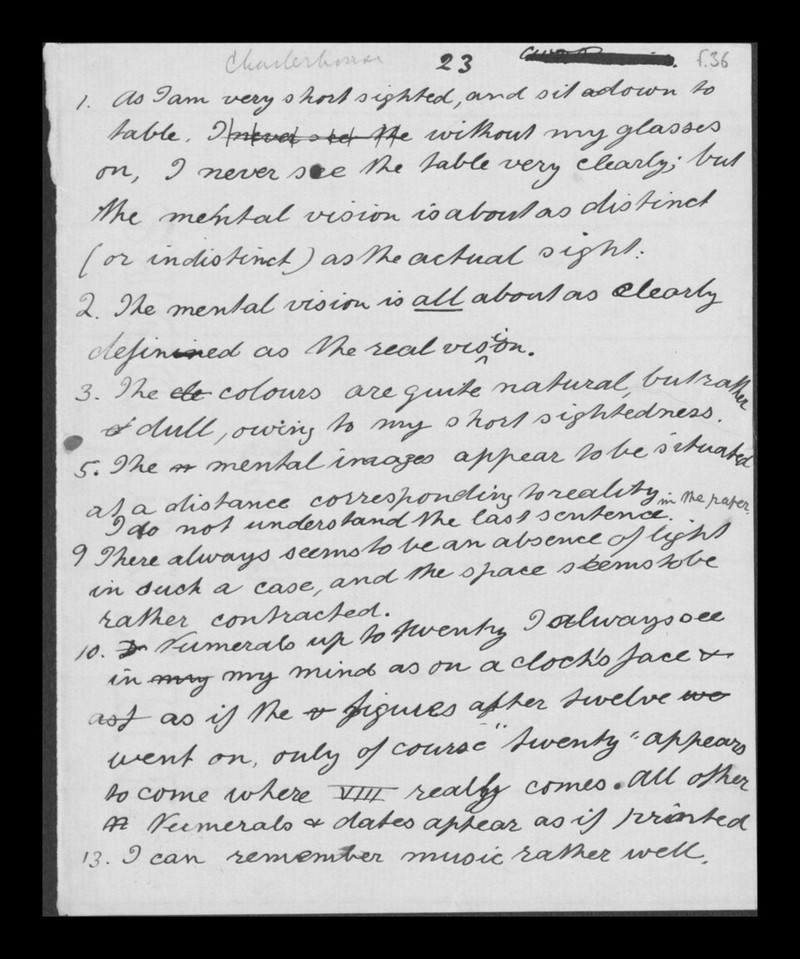 Charterhouse 23 f.36
1. As I am very short sighted, and sit adown to
table. I never see the without my glasses
on, I never see the table very clearly; but
the mental vision is about as distinct
(or indistinct) as the actual sight.
2. The mental vision is all about as clearly
defininined as the real vision.
3. The cle colours are quite natural, but rather
d dull, owing to my short sightedness.
5. The m mental images appear to be situated
at a distance corresponding to reality
in the paper.
I do not understand the last sentence.
9 There always seems to be an absence of light
in such a case, and the space seems to be
rather contracted.
10. Numerals up to twenty I always see
in my my mind as on a clock's face &
as if as if the figures after twelve we
went on, only of course "twenty" appears
to come where VIII really comes. All other
Numerals & dates appear as if printed
13. I can remember music rather well.